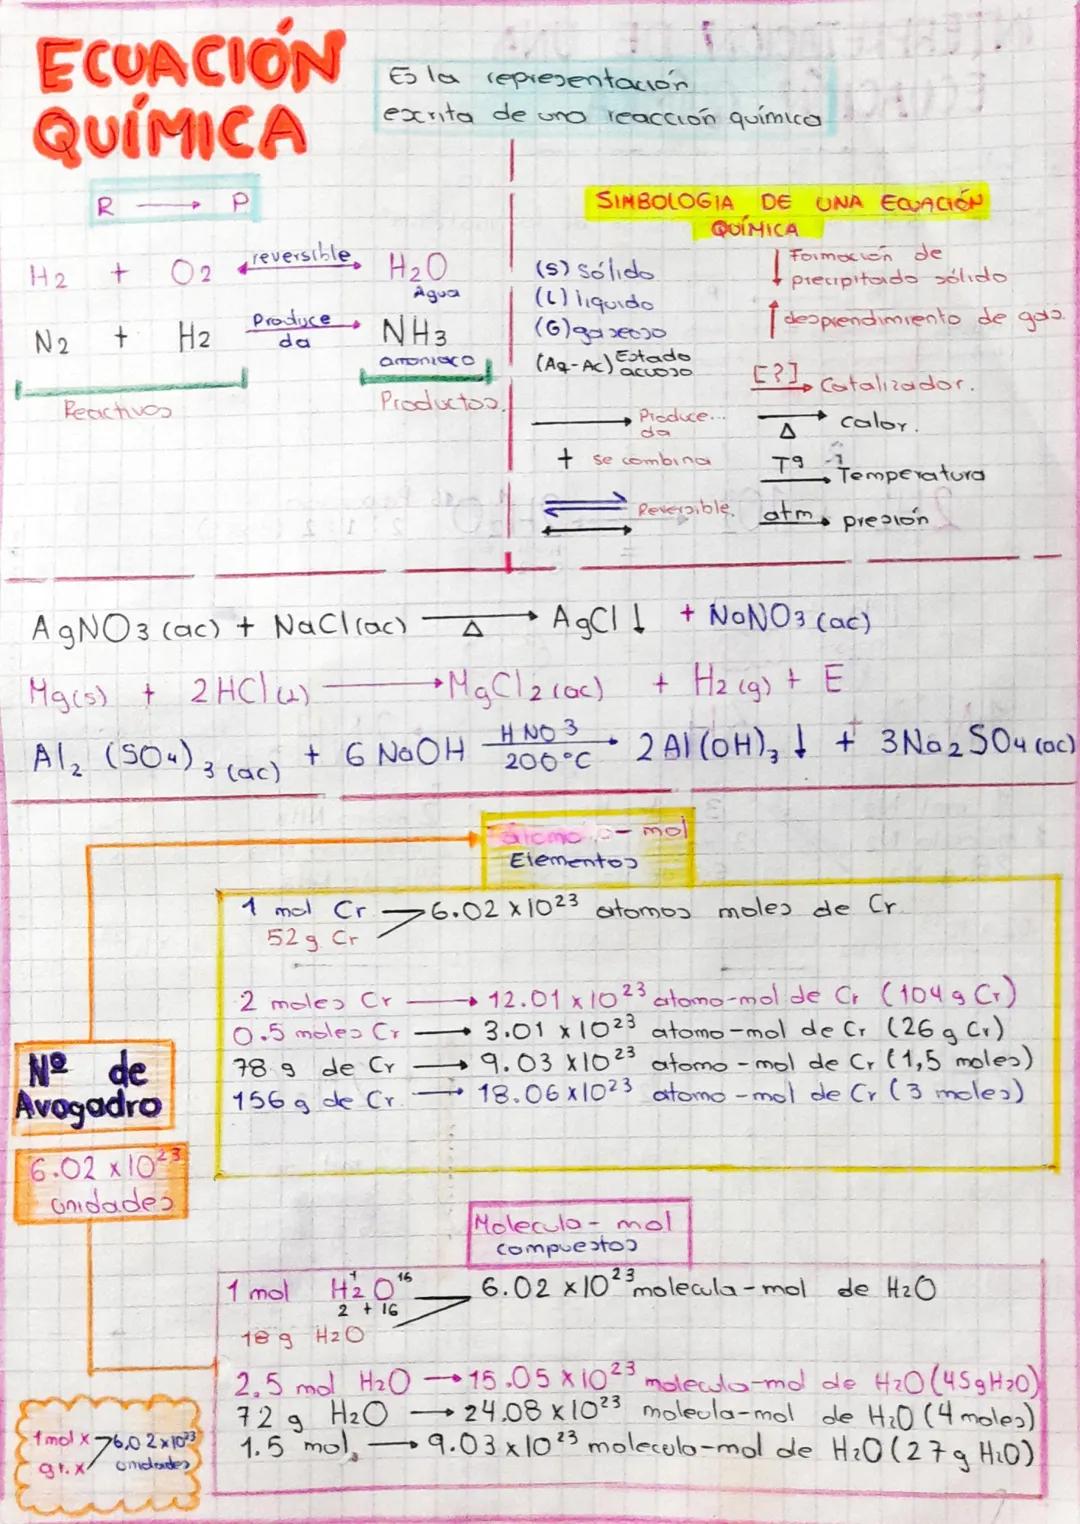 ECUACIÓN
QUÍMICA
Es la representación
escrita de una reacción química
R → P
H2 + O2 reversible H2O
Agua
N2 + H2 Produce NH3
da
amoniaco
Reactivos
Productos.
SIMBOLOGIA DE UNA ECUACIÓN
QUÍMICA
(S) Sólido
(L) liquido
(G) gaseoso
(Aq-Ac) Estado
acuoso
→ Produce...
da
+ se combina
⇌ Reversible.
↔
↓ Formación de
precipitado sólido
↑ desprendimiento de gas.
[?] → Catalizador.
Δ → calor.
Tº → Temperatura
atm → presión
AgNO3 (ac) + NaCl(ac) →Δ AgCl ↓ + NaNO3 (ac)
Mg(s) + 2HCl(l) → MgCl2 (ac) + H2 (g) + E
Al2 (SO4)3 (ac) + 6 NaOH HNO3 → 2 Al(OH)3 ↓ + 3Na2SO4 (ac)
200°C
átomo - mol
Elementos
1 mol Cr → 6.02 x 10²³ atomos moles de Cr
52 g Cr
2 moles Cr → 12.01 x 10²³ atomo-mol de Cr (104 g Cr)
0.5 moles Cr → 3.01 x 10²³ atomo-mol de Cr (26 g Cr)
78 g de Cr → 9.03 x 10²³ atomo-mol de Cr (1,5 moles)
156 g de Cr → 18.06 x 10²³ atomo-mol de Cr (3 moles)
Nº de
Avogadro
6.02 x 10²³
unidades
Molecula - mol
compuestos
1 mol H2 O 6.02 x 10²³ molecula-mol de H2O
1 16
2 + 16
18 g H2O
2,5 mol H2O → 15.05 x 10²³ molecula-mol de H2O (45g H2O)
72 g H2O → 24.08 x 10²³ molecula-mol de H2O (4 moles)
1.5 mol, → 9.03 x 10²³ molecula-mol de H2O (27 g H2O)
1 mol x → 6,02 x 10²³
gr. x unidades